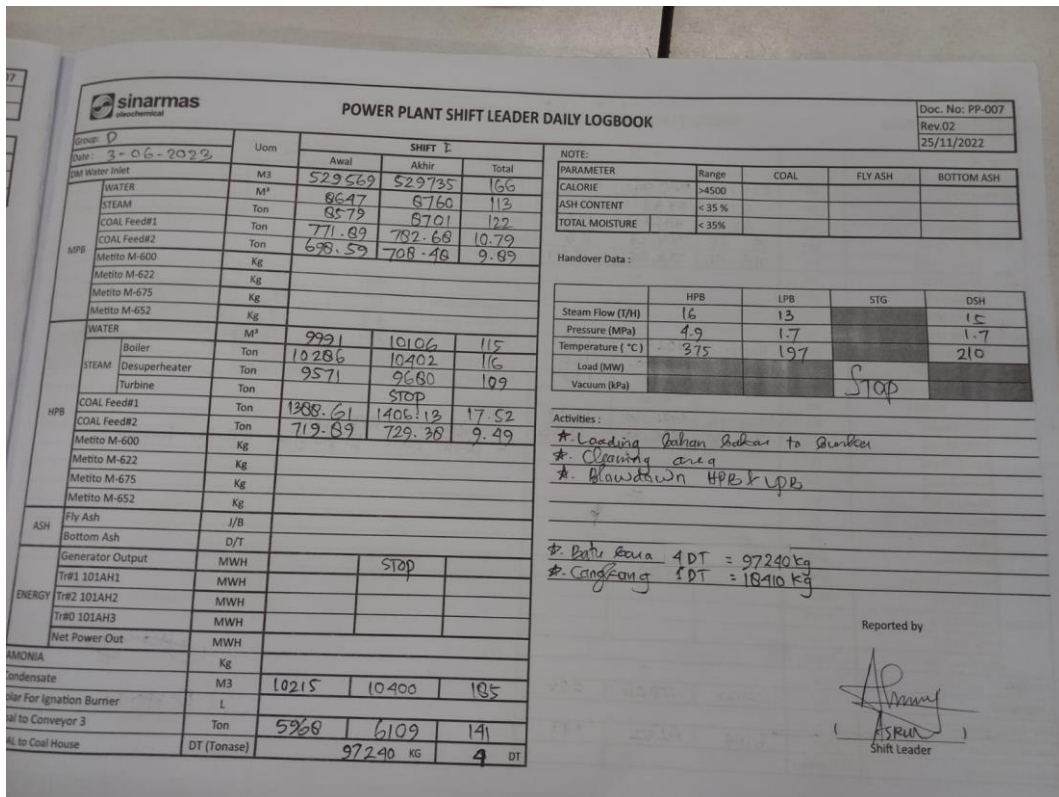 17
sinarmas
oleochemical
POWER PLANT SHIFT LEADER DAILY LOGBOOK
Doc. No: PP-007
Rev.02
25/11/2022
Group: D
Date: 3-06-2023
Uom
SHIFT I
Awal Akhir Total
DM Water Inlet M3 529569 529735 166
MPB
WATER M³ 8647 8760 113
STEAM Ton 8579 8701 122
COAL Feed#1 Ton 771.89 782.68 10.79
COAL Feed#2 Ton 698.59 708.48 9.89
Metito M-600 Kg
Metito M-622 Kg
Metito M-675 Kg
Metito M-652 Kg
HPB
WATER M³ 9991 10106 115
STEAM
Boiler Ton 10286 10402 116
Desuperheater Ton 9571 9680 109
Turbine Ton STOP
COAL Feed#1 Ton 1388.61 1406.13 17.52
COAL Feed#2 Ton 719.89 729.38 9.49
Metito M-600 Kg
Metito M-622 Kg
Metito M-675 Kg
Metito M-652 Kg
ASH
Fly Ash J/B
Bottom Ash D/T
ENERGY
Generator Output MWH STOP
Tr#1 101AH1 MWH
Tr#2 101AH2 MWH
Tr#0 101AH3 MWH
Net Power Out MWH
AMONIA Kg
Condensate M3 10215 10400 185
olar For Ignation Burner L
al to Conveyor 3 Ton 5968 6109 141
AL to Coal House DT (Tonase) 97240 KG 4 DT
NOTE:
PARAMETER Range COAL FLY ASH BOTTOM ASH
CALORIE >4500
ASH CONTENT < 35 %
TOTAL MOISTURE < 35%
Handover Data :
HPB LPB STG DSH
Steam Flow (T/H) 16 13 15
Pressure (MPa) 4.9 1.7 1.7
Temperature ( °C) 375 197 210
Load (MW) STOP
Vacuum (kPa)
Activities :
*. Loading bahan bakar to Bunker
*. Cleaning area
*. Blowdown HPB & LPB
*. Batu bara 4 DT = 97240 kg
*. Cangkang 1 DT = 18410 kg
Reported by
( ASRUL )
Shift Leader